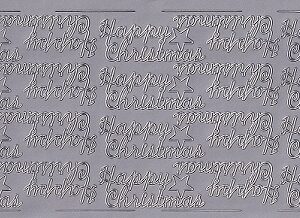 Happy
Christmas
Happy
Christmas
Happy
Christmas
Happy
Christmas
Happy
Christmas
Happy
Christmas
Happy
Christmas
Happy
Christmas
Happy
Christmas
Happy
Christmas
Happy
Christmas
Happy
Christmas